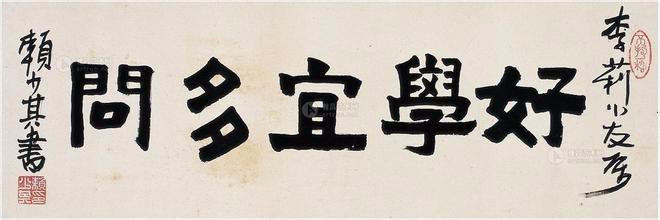 李莉小友属
好學宜多問
賴少其書